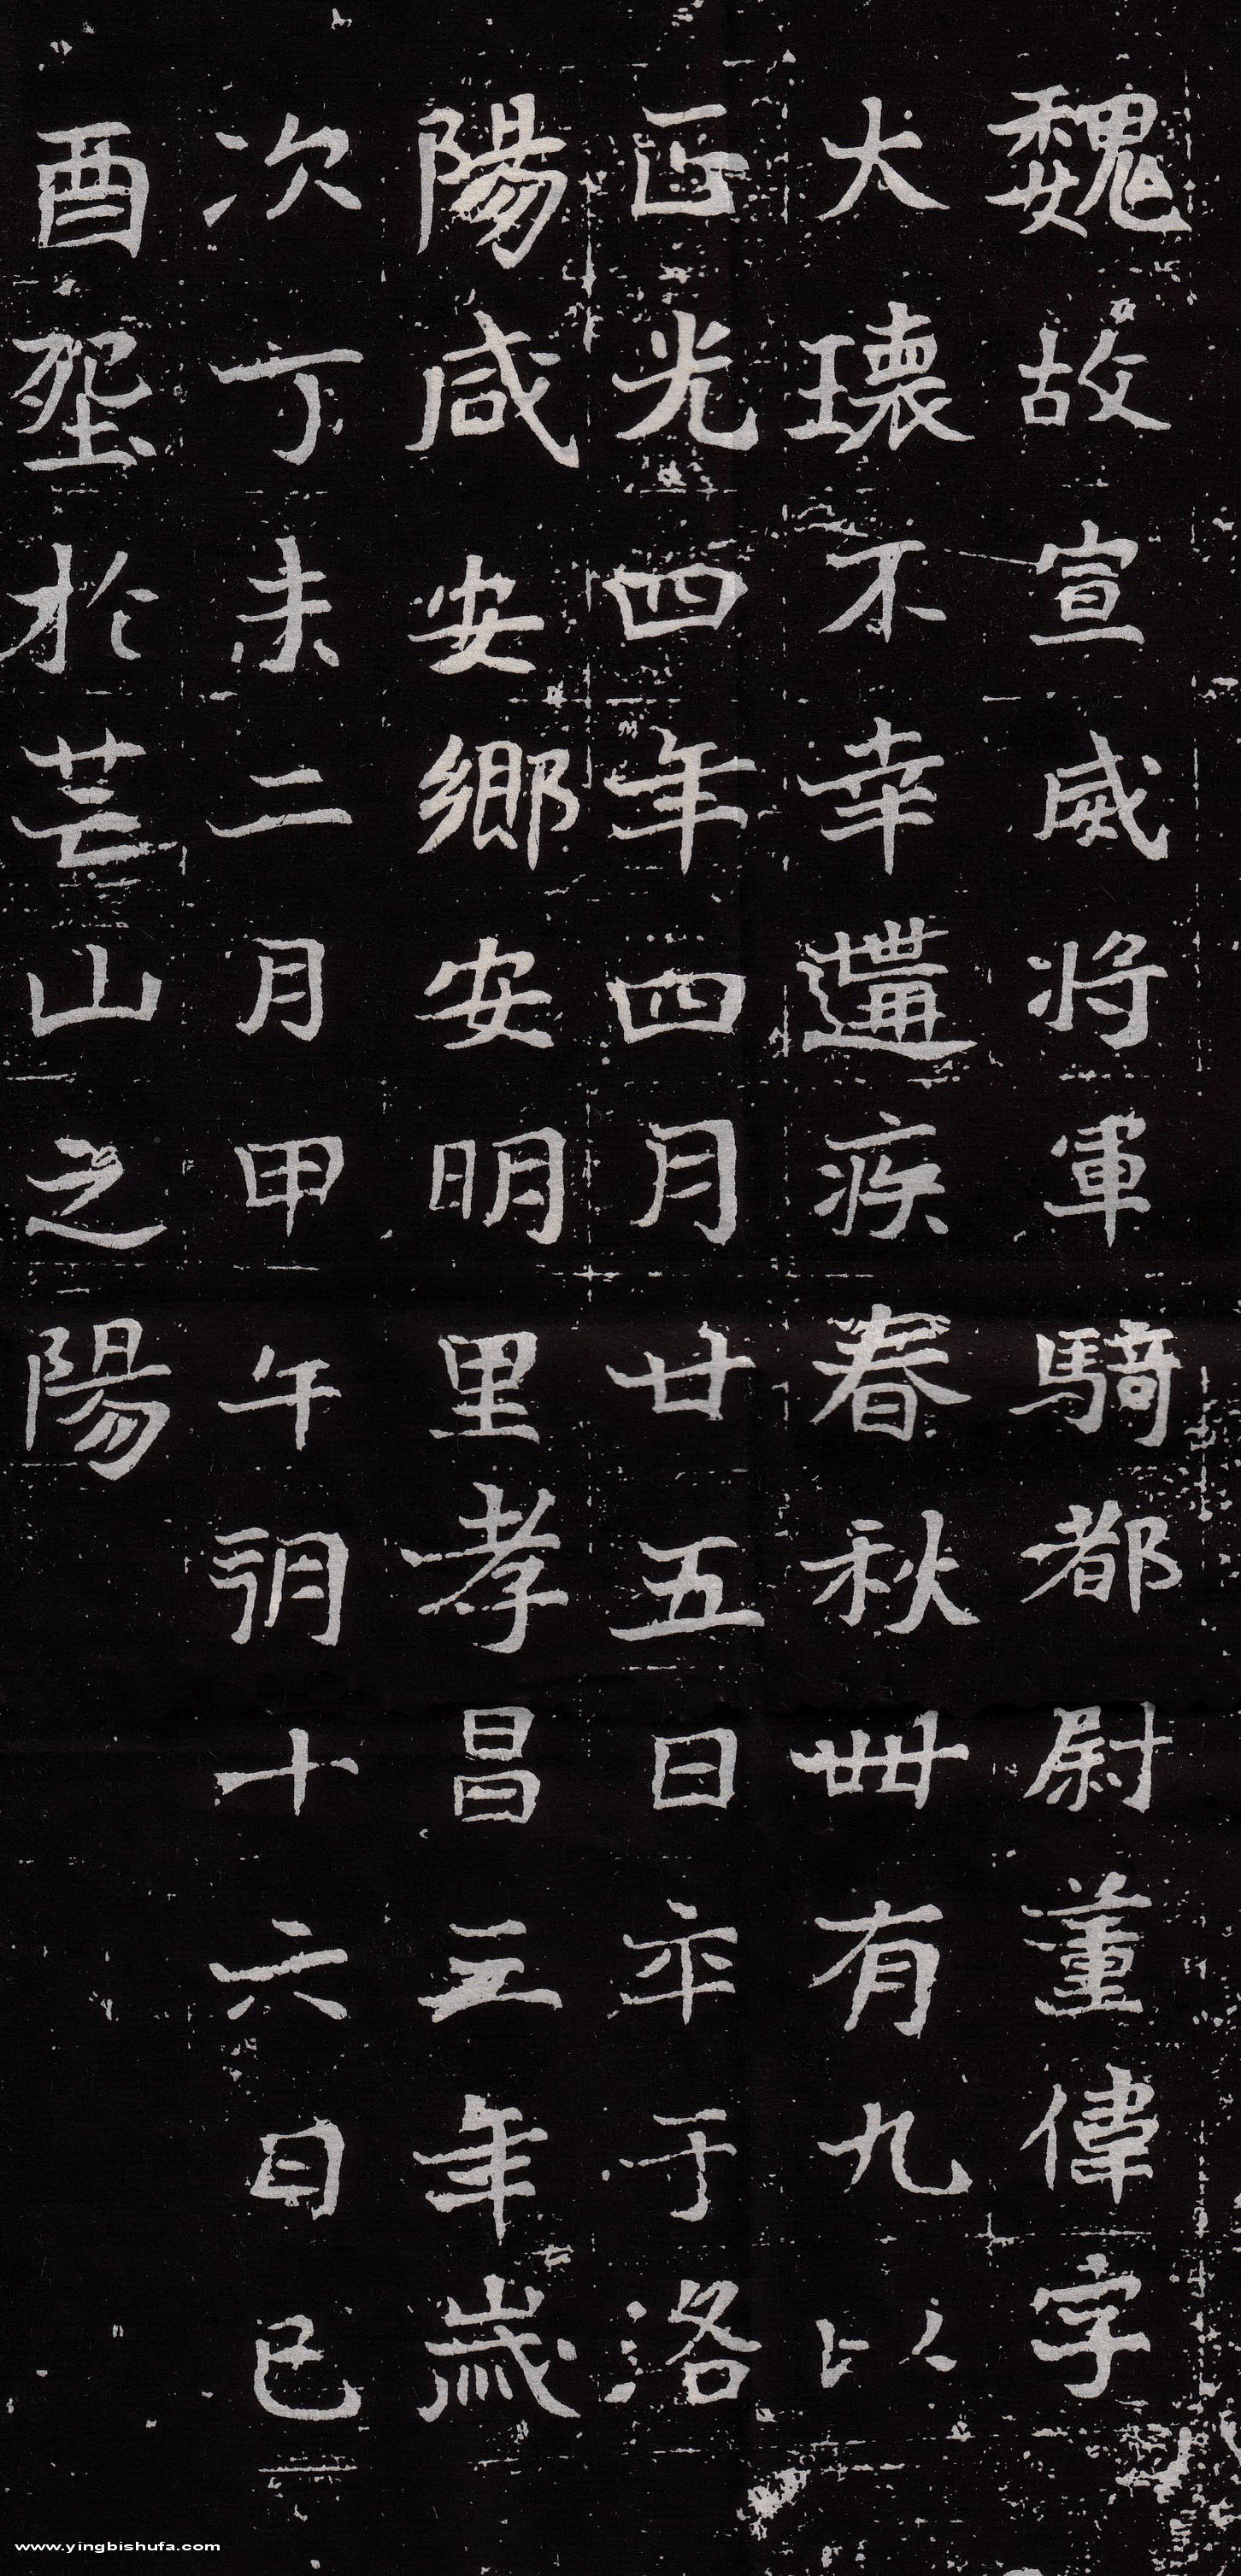 魏故宣威將軍騎都尉董偉字
大瓌不幸遘疾春秋卌有九以
正光四年四月廿五日卒于洛
陽咸安鄉安明里孝昌三年歲
次丁未二月甲午朔十六日己
酉堲於芒山之陽
www.yingbishufa.com